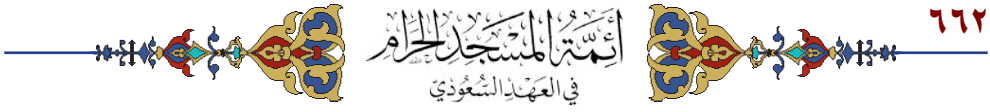 ٦٦٢
أئمة المسجد الحرام
في العهد السعودي